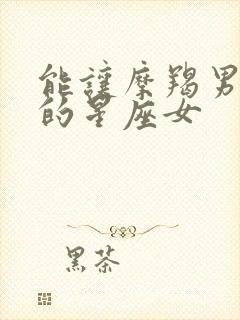 能讓摩羯男
的星座女
黑茶